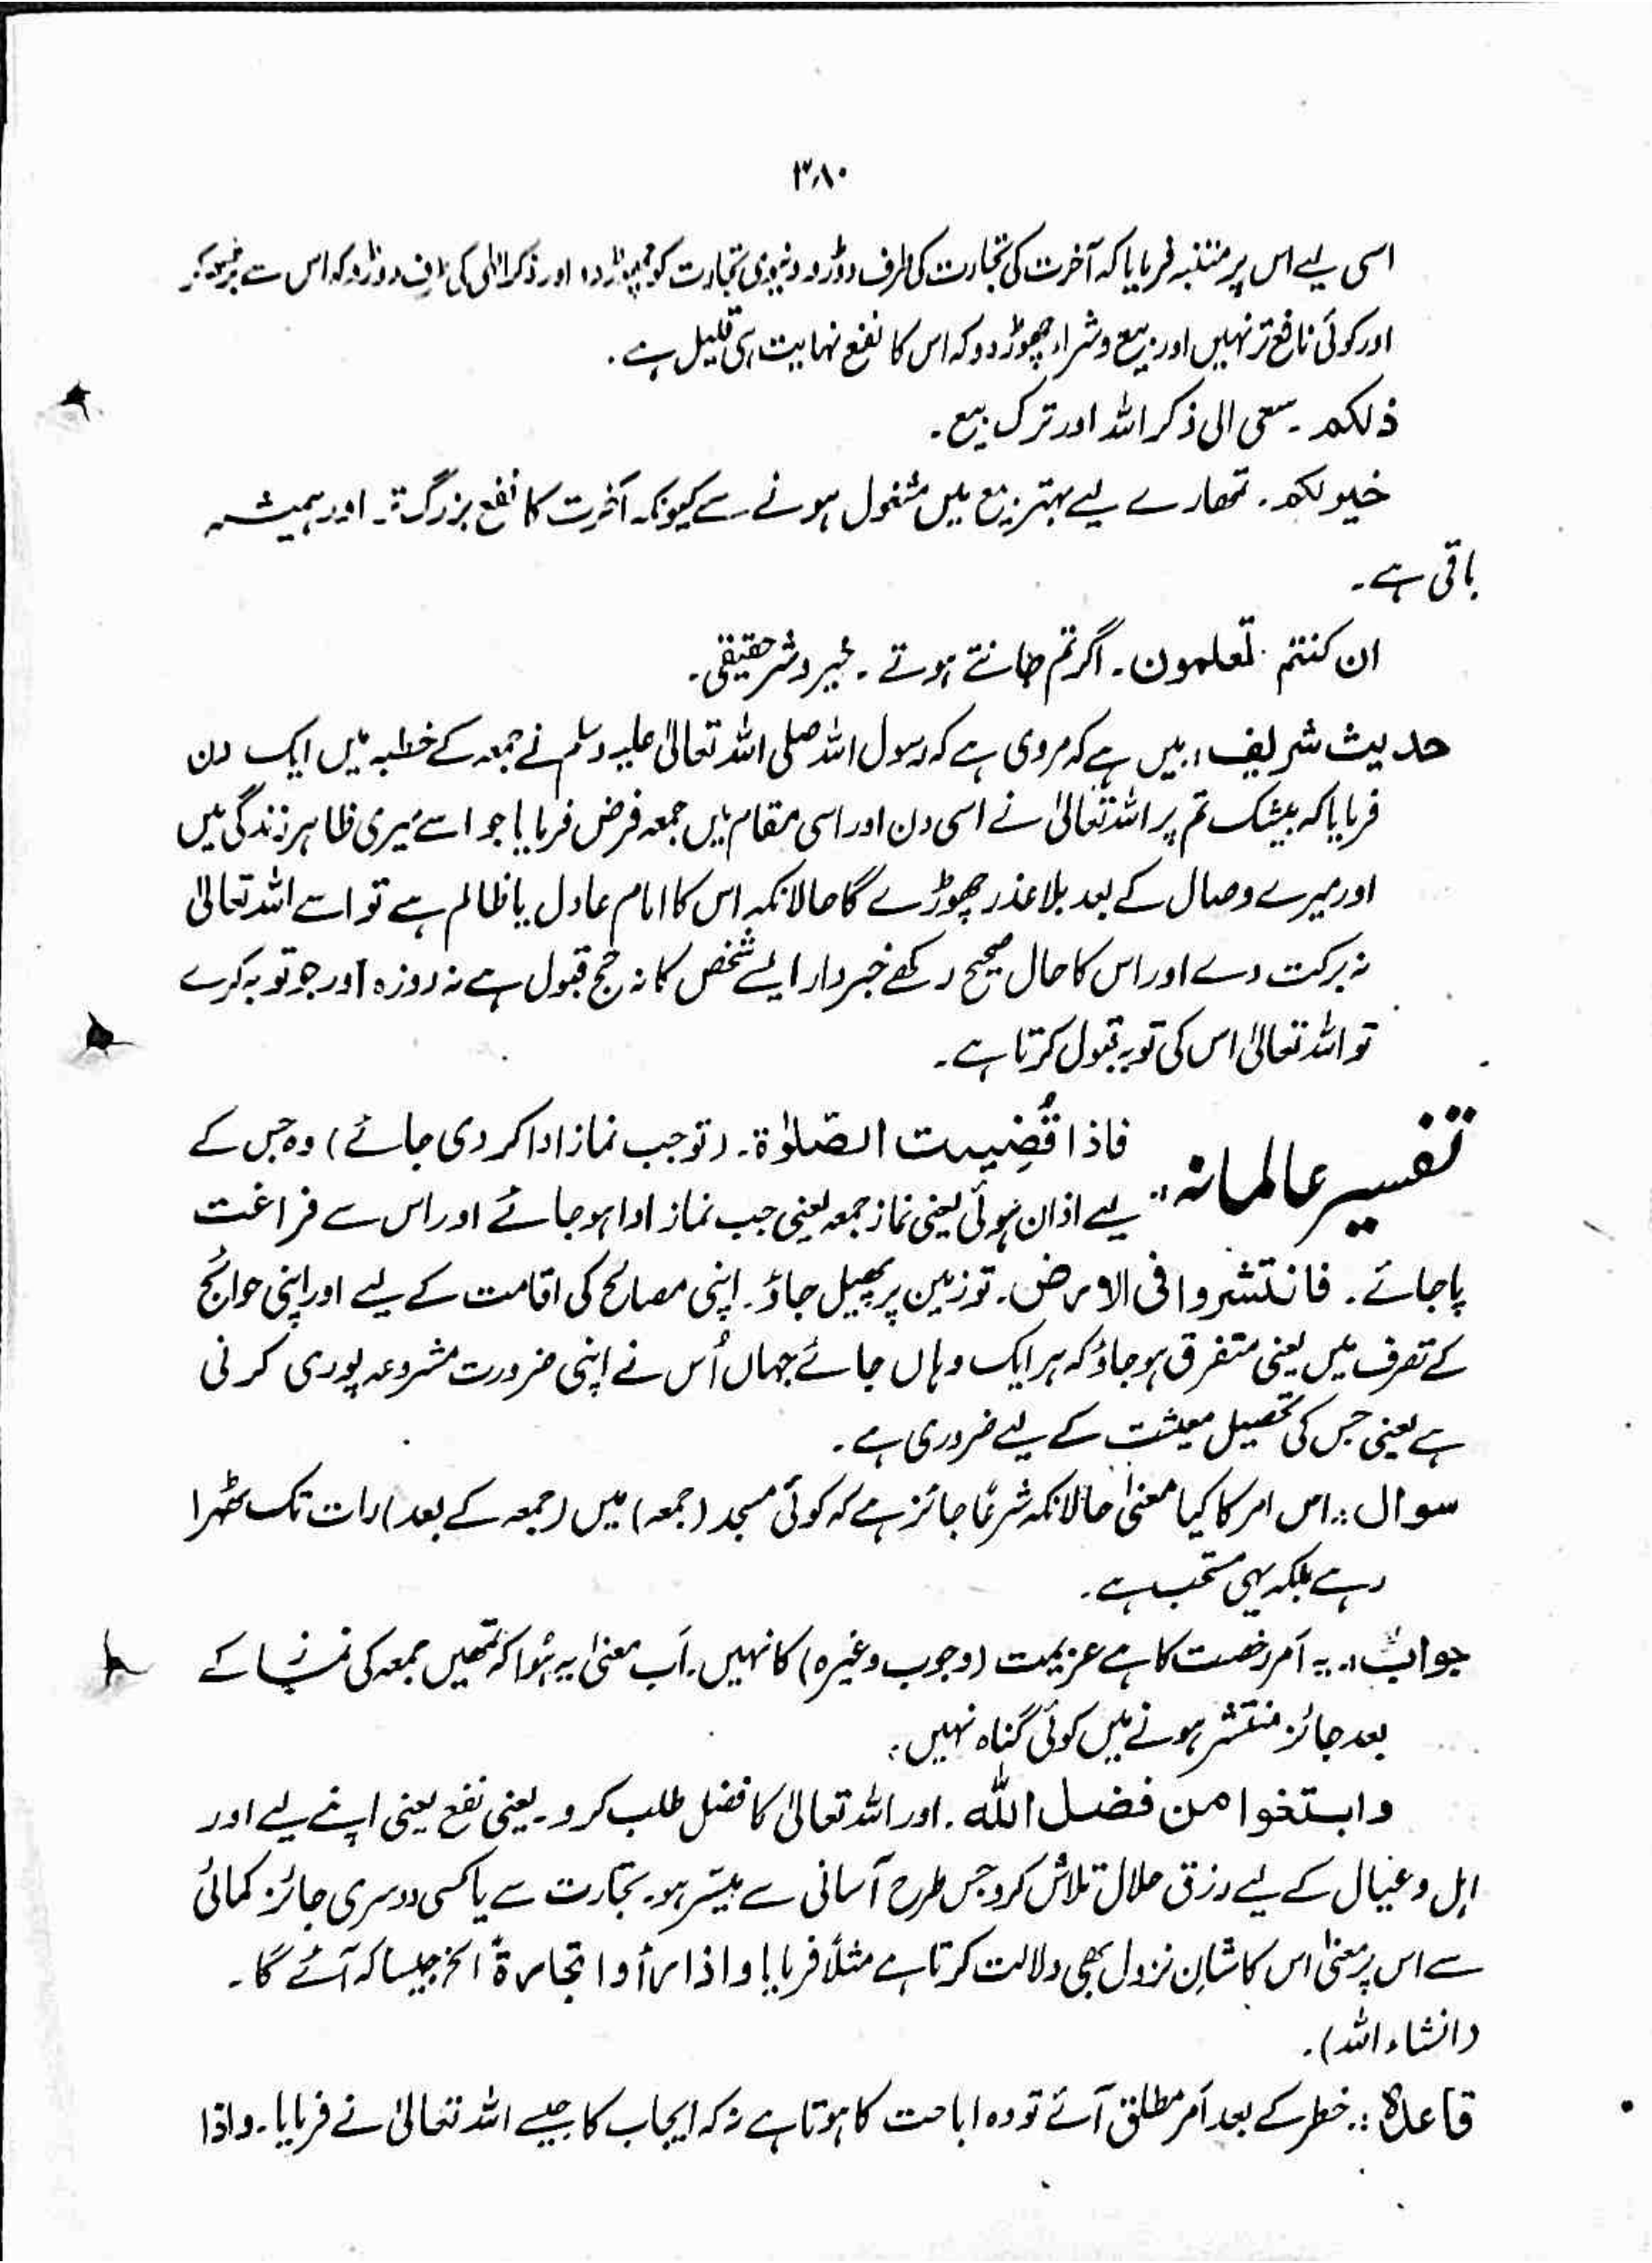 ۳۸۰
اسی لیے اس پر متنبہ فرمایا کہ آخرت کی تجارت کی طرف دوڑو دنیوی تجارت کو چھوڑ دو اور ذکر الٰہی کی طرف دوڑو کہ اس سے بڑھ کر
اور کوئی نافع تر نہیں اور بیع و شراء چھوڑ دو کہ اس کا نفع نہایت ہی قلیل ہے۔
ذلکم ۔ سعی الی ذکر اللہ اور ترک بیع ۔
خیر لکم ۔ تمھارے لیے بہتر بیع میں مشغول ہونے سے کیونکہ آخرت کا نفع بزرگ تر اور ہمیشہ
باقی ہے ۔
ان کنتم تعلمون ۔ اگر تم جانتے ہوتے ۔ خیر و شر حقیقی ۔
حدیث شریف :۔ میں ہے کہ مروی ہے کہ رسول اللہ صلی اللہ تعالیٰ علیہ وسلم نے جمعہ کے خطبہ میں ایک دن
فرمایا کہ بیشک تم پر اللہ تعالیٰ نے اسی دن اور اسی مقام میں جمعہ فرض فرمایا جو اسے میری ظاہر زندگی میں
اور میرے وصال کے بعد بلا عذر چھوڑے گا حالانکہ اس کا امام عادل یا ظالم ہے تو اسے اللہ تعالیٰ
نہ برکت دے اور اس کا حال صحیح رکھے خبردار ایسے شخص کا نہ حج قبول ہے نہ روزہ اور جو توبہ کرے
تو اللہ تعالیٰ اس کی توبہ قبول کرتا ہے ۔
تفسیر عالمانہ :۔ فاذا قُضِیت الصّلوٰۃ ۔ (تو جب نماز ادا کر دی جائے) وہ جس کے
لیے اذان ہوئی یعنی نماز جمعہ یعنی جب نماز ادا ہو جائے اور اس سے فراغت
پا جائے ۔ فانتشروا فی الارض ۔ تو زمین پر پھیل جاؤ ۔ اپنی مصالح کی اقامت کے لیے اور اپنی حوائج
کے تصرف میں یعنی متفرق ہو جاؤ کہ ہر ایک وہاں جائے جہاں اُس نے اپنی ضرورت مشروعہ پوری کرنی
ہے یعنی جس کی تحصیل معیشت کے لیے ضروری ہے ۔
سوال :۔ اس امر کا کیا معنیٰ حالانکہ شرعًا جائز ہے کہ کوئی مسجد (جمعہ) میں (جمعہ کے بعد) رات تک ٹھہرا
رہے بلکہ یہی مستحب ہے ۔
جواب :۔ یہ اَمر رخصت کا ہے عزیمت (وجوب وغیرہ) کا نہیں ۔ اَب معنیٰ یہ ہُوا کہ تمھیں جمعہ کی نماز کے
بعد جائز منتشر ہونے میں کوئی گناہ نہیں ۔
وابتغوا من فضل اللہ ۔ اور اللہ تعالیٰ کا فضل طلب کرو ۔ یعنی نفع یعنی اپنے لیے اور
اہل و عیال کے لیے رزق حلال تلاش کرو جس طرح آسانی سے میسّر ہو ۔ تجارت سے یا کسی دوسری جائز کمائی
سے اس پر معنیٰ اس کا شانِ نزول بھی دلالت کرتا ہے مثلًا فرمایا واذا رأوا تجارۃً الخ جیسا کہ آئے گا ۔
(انشاء اللہ) ۔
قاعدہ :۔ خطر کے بعد اَمر مطلق آئے تو وہ اباحت کا ہوتا ہے نہ کہ ایجاب کا جیسے اللہ تعالیٰ نے فرمایا ۔ واذا